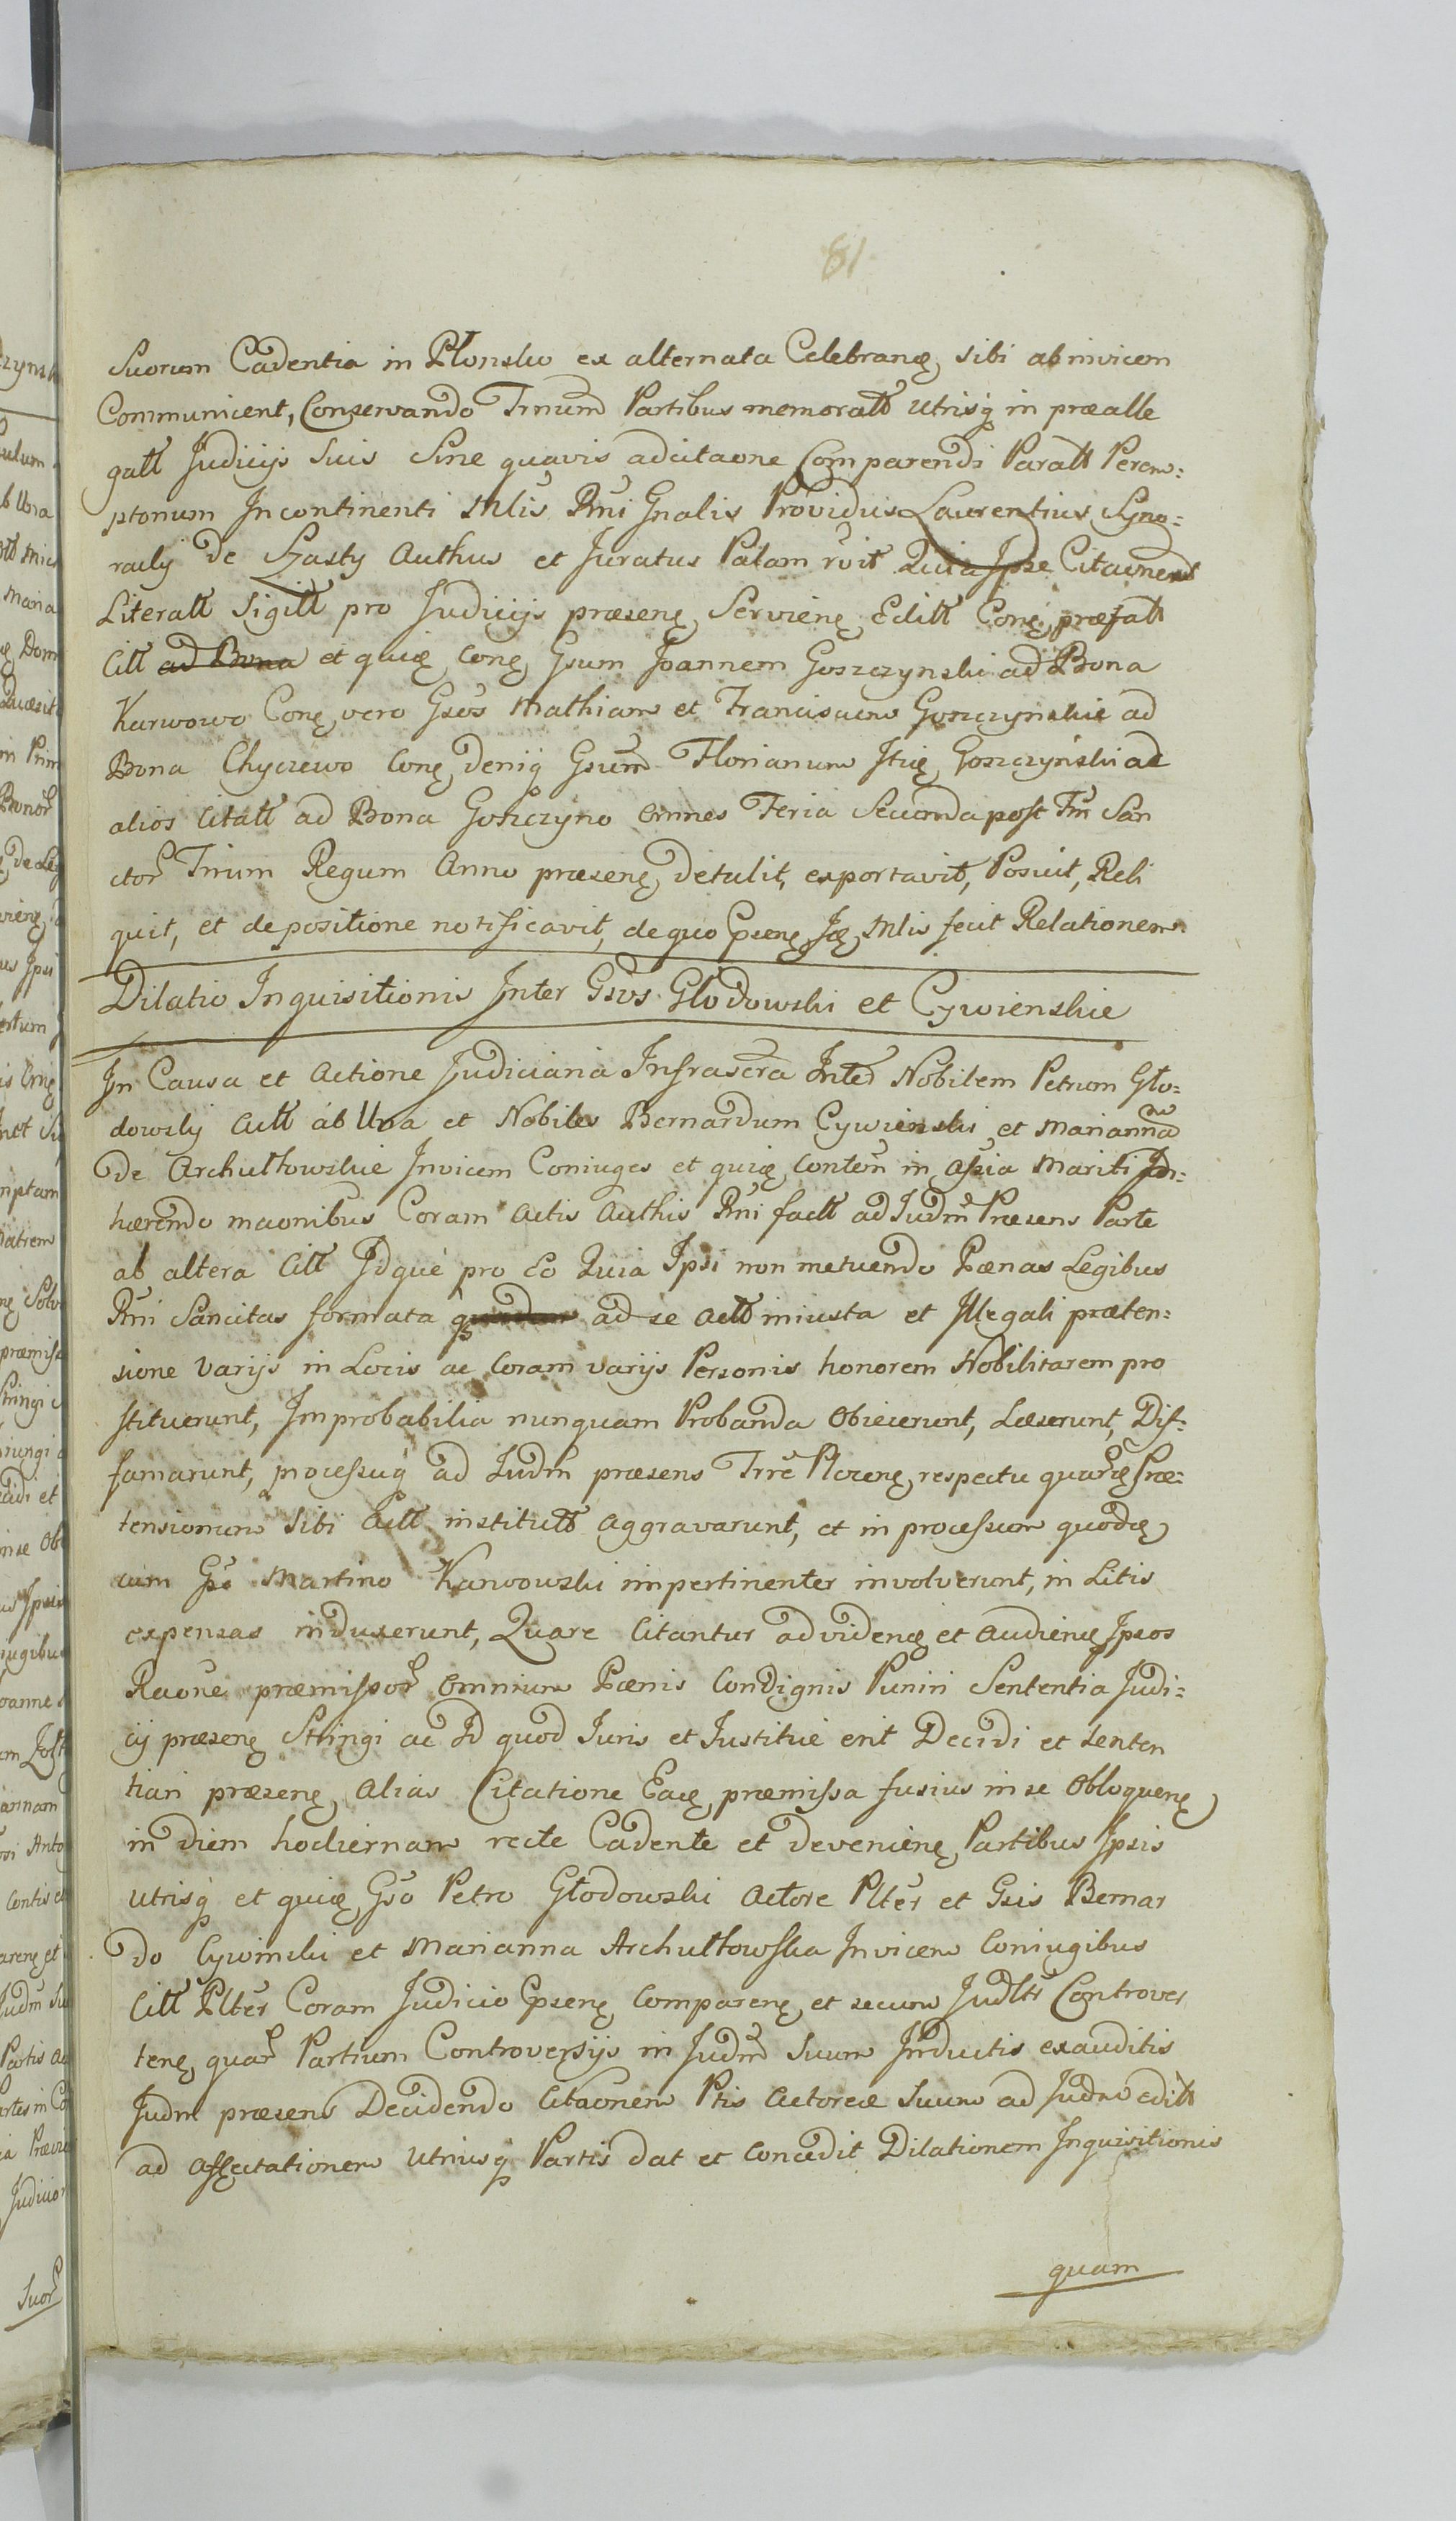 81
Suorum Cadentia in Płonsko ex alternata Celebranę, sibi ab invicem
Communicent, Conservando Trnum Partibus memoratt utrisq in prealle
gatt Judicijs Suis Sine quavis adcitaone Comparendi Paratt Perem:
ptorium Incontinenti Mlis Rni Gnalis Providus Laurentius Syno:
radij de Szasty Authus et Juratus Palam rvit Quia Ipse Citaonem
Literatt Sigitt pro Judicijs præsenę, Servienę, Editt Conę, præfatt
Citt ad Bona et quię, Conę, Gsum Joannem Goszczynski ad Bona
Karwowo Conę, vero Gsos Mathiam et Franciscum Goszczynskie ad
Bona Chyczewo Conę, deniq Gsum Florianum Itię, Goszczynski ad
alios Citatt ad Bona Goszczyno omnes Feria Secunda post Fm San
ctor Trium Regum Anno præsenę, detulit, exportavit, Posuit, Reli
quit, et depositione notificavit, de quo Cpsenę, Ję, Mlis fecit Relationem
Dilatio Inquisitionis Inter Gsos Głodowski et Cywienskie
In Causa et Actione Judiciaria Infrascra Inter Nobilem Petrum Gło:
dowsky Actt ab Una et Nobiles Bernardum Cywienski et Mariannam
De Archutowskie Invicem Coniuges et quię, Contem in assia Mariti In:
hærendo maonibus Coram Actis Authis Rni factt ad Judm Præsens Parte
ab altera Citt Idque pro Eo Quia Ipsi non metuendo Pœnas Legibus
Rni Sancitas formata ad se Actt iniusta et Illegali præten:
sione Varijs in Locis ac Coram varijs Personis honorem Nobilitarem pro
stituerunt, Improbabilia nunquam Probanda Obiecerunt, Læserunt, Dif:
famarunt, processuq ad Judm præsens Trre Plocenę, respectu quarę Præ:
tensionum Sibi Actt institutt aggravarunt, et in processum quodę,
cum Gso Martino Karwowski impertinenter involverunt, in Litis
expensas induxerunt, Quare Citantur ad videnę et Audienę Ipsos
Raone præmissor omnium Pœnis Condignis Puniri Sententia Judi:
cij præsenę, Stringi ac Id quod Juris et Justitiæ erit Decidi et senten
tiari præsenę, Alias Citatione Eaę, præmissa fusius in se Obloquenę,
in diem hodiernam recte Cadente et devenienę, Partibus Ipsis
utrisq et quię, Gso Petro Głodowski Actore Plter et Gsis Bernar
do Cywinski et Marianna Archutowska Invicem Coniugibus
Citt Plter Coram Judicio Cpsenę, Comparenę, et secum Judltr Controver
tenę, quar Partium Controversijs in Judm Suum Inductis exauditis
Judm præsens Decidendo Citaonem Ptis Actoreæ Suum ad Judm editt
ad affectationem utriusq Partis dat et Concedit Dilationem Inquisitionis
quam